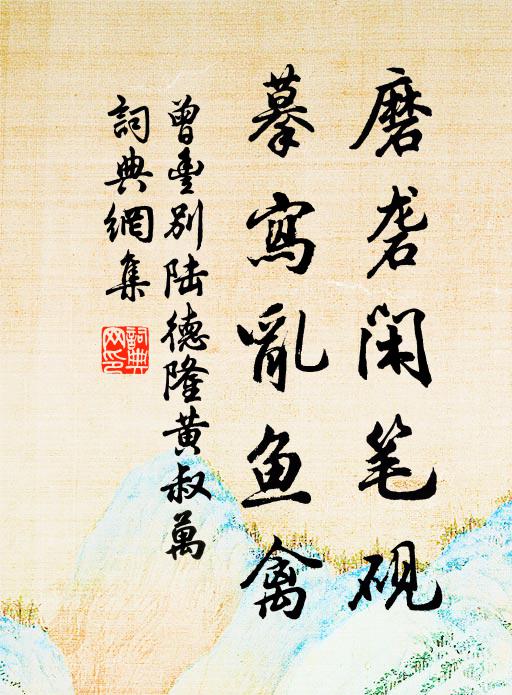 磨砻闲笔砚
摹寫亂鱼禽
曾豊别陆德隆黄叔萬
詞典網集
詞典网印